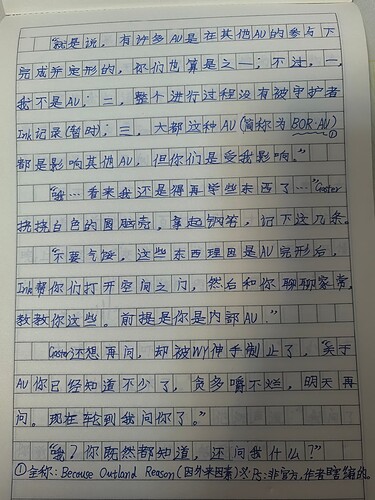 “就是说，有许多AU是在其他AU的参与下
完成并定形的，你们也算是之一；不过，一，
我不是AU；二，整个进行过程没有被守护者
Ink记录(暂时)；三，大部这种AU(简称为BOR·AU)①
都是影响其他AU，但你们是受我影响。”
“哦…看来我还是得再学些东西了…”Gaster
挠挠白色的圆脑壳，拿起钢笔，记下这几条。
“不要气馁，这些东西理因是AU完形后，
Ink帮你们打开空间之门，然后和你聊聊家常，
教教你这些。前提是你是内部AU。”
Gaster还想再问，却被WY伸手制止了，“关于
AU你已经知道不少了，贪多嚼不烂，明天再
问。现在轮到我问你了。”
“哦？你既然都知道，还问我什么？”
①全称：Because Outland Reason(因外来因素)义 PS：非官方，作者瞎编的。